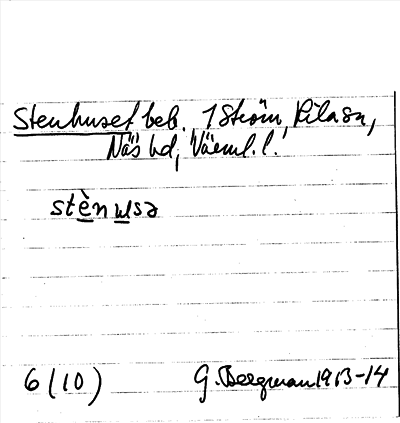 Stenhuset beb. 1 Ström, Kila sn,
Näs hd, Värml. l.
stènusə
6 (10) G. Bergman 1913-14